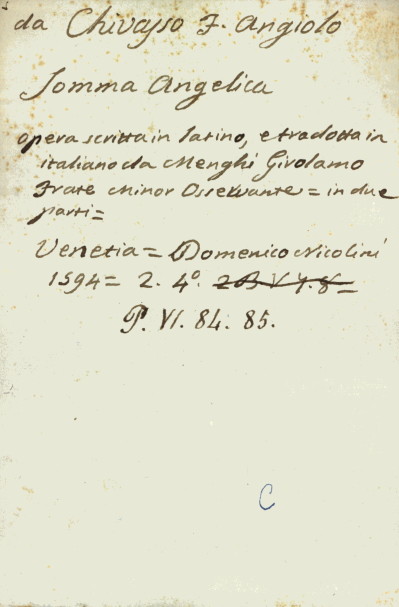 da Chivasso F. Angiolo
Somma Angelica
opera scritta in latino, e tradotta in
italiano da Menghi Girolamo
Frate Minor Osservante = in due
parti =
Venetia = Domenico Nicolini
1594 = 2. 4º. =
P. VI. 84. 85.
C